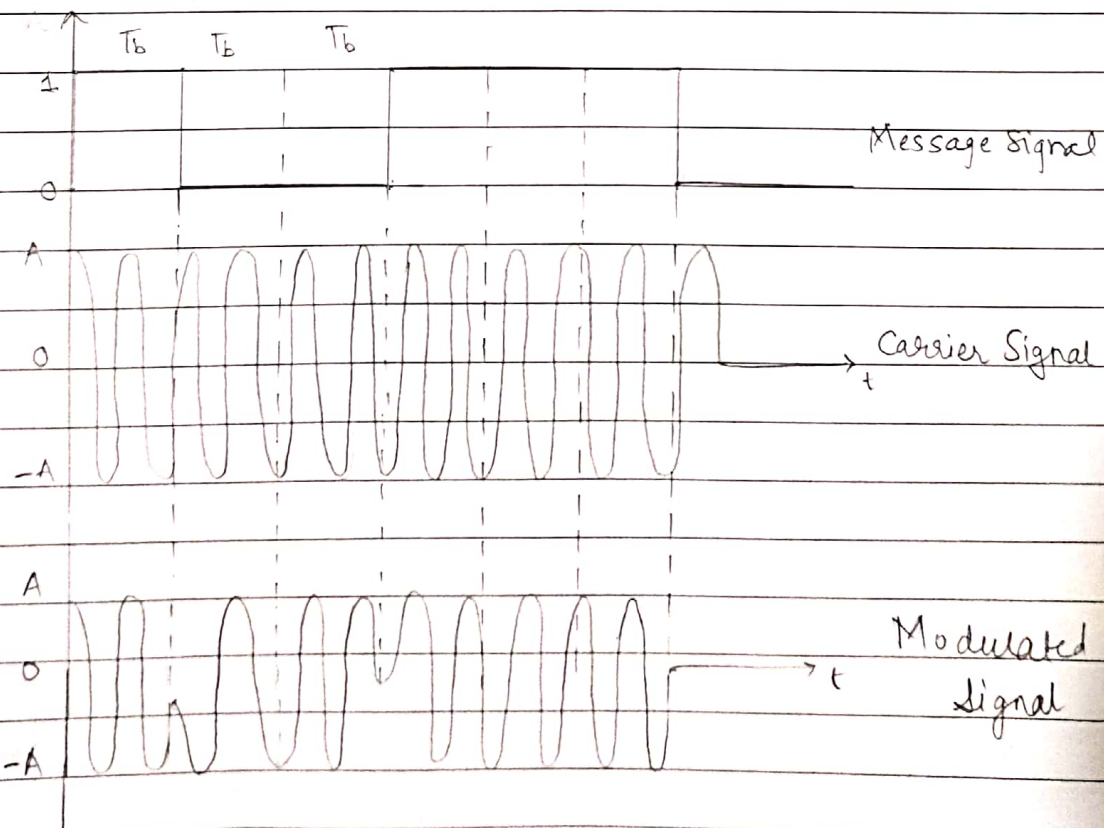 Tb Tb Tb
1
Message Signal
0
A
0
Carrier Signal
t
-A
A
Modulated
0
t
Signal
-A